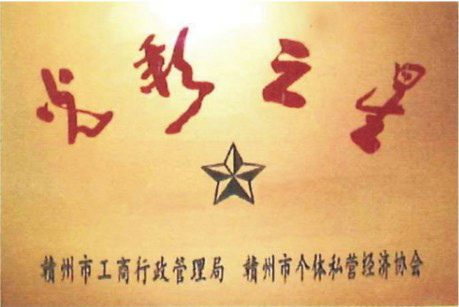 光彩之星
赣州市工商行政管理局 赣州市个体私营经济协会